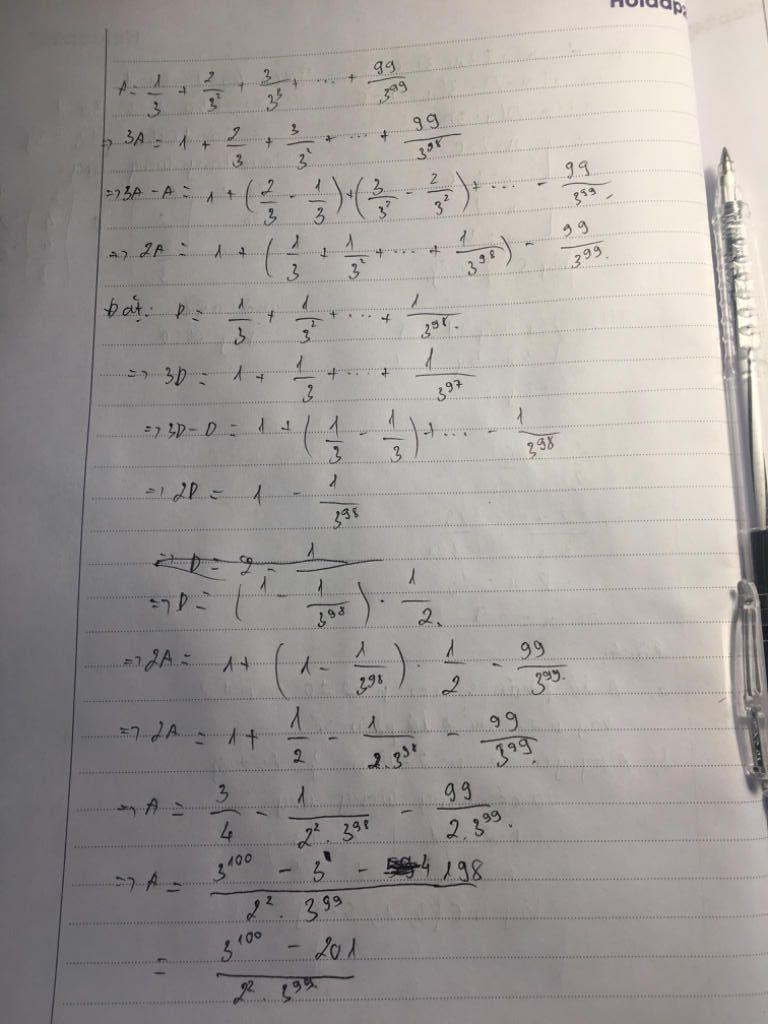 Holdap
A = 1/3 + 2/3² + 3/3³ + ... + 99/3⁹⁹
=> 3A = 1 + 2/3 + 3/3² + ... + 99/3⁹⁸
=> 3A - A = 1 + (2/3 - 1/3) + (3/3² - 2/3²) + ... - 99/3⁹⁹.
=> 2A = 1 + (1/3 + 1/3² + ... + 1/3⁹⁸) - 99/3⁹⁹.
Đặt: D = 1/3 + 1/3² + ... + 1/3⁹⁸.
=> 3D = 1 + 1/3 + ... + 1/3⁹⁷
=> 3D - D = 1 + (1/3 - 1/3) + ... - 1/3⁹⁸
=> 2D = 1 - 1/3⁹⁸
=> D = (1 - 1/3⁹⁸) . 1/2.
=> 2A = 1 + (1 - 1/3⁹⁸) . 1/2 - 99/3⁹⁹.
=> 2A = 1 + 1/2 - 1/2.3⁹⁸ - 99/3⁹⁹.
=> A = 3/4 - 1/2².3⁹⁸ - 99/2.3⁹⁹.
=> A = 3¹⁰⁰ - 3 - 198/2².3⁹⁹
= 3¹⁰⁰ - 201/2².3⁹⁹